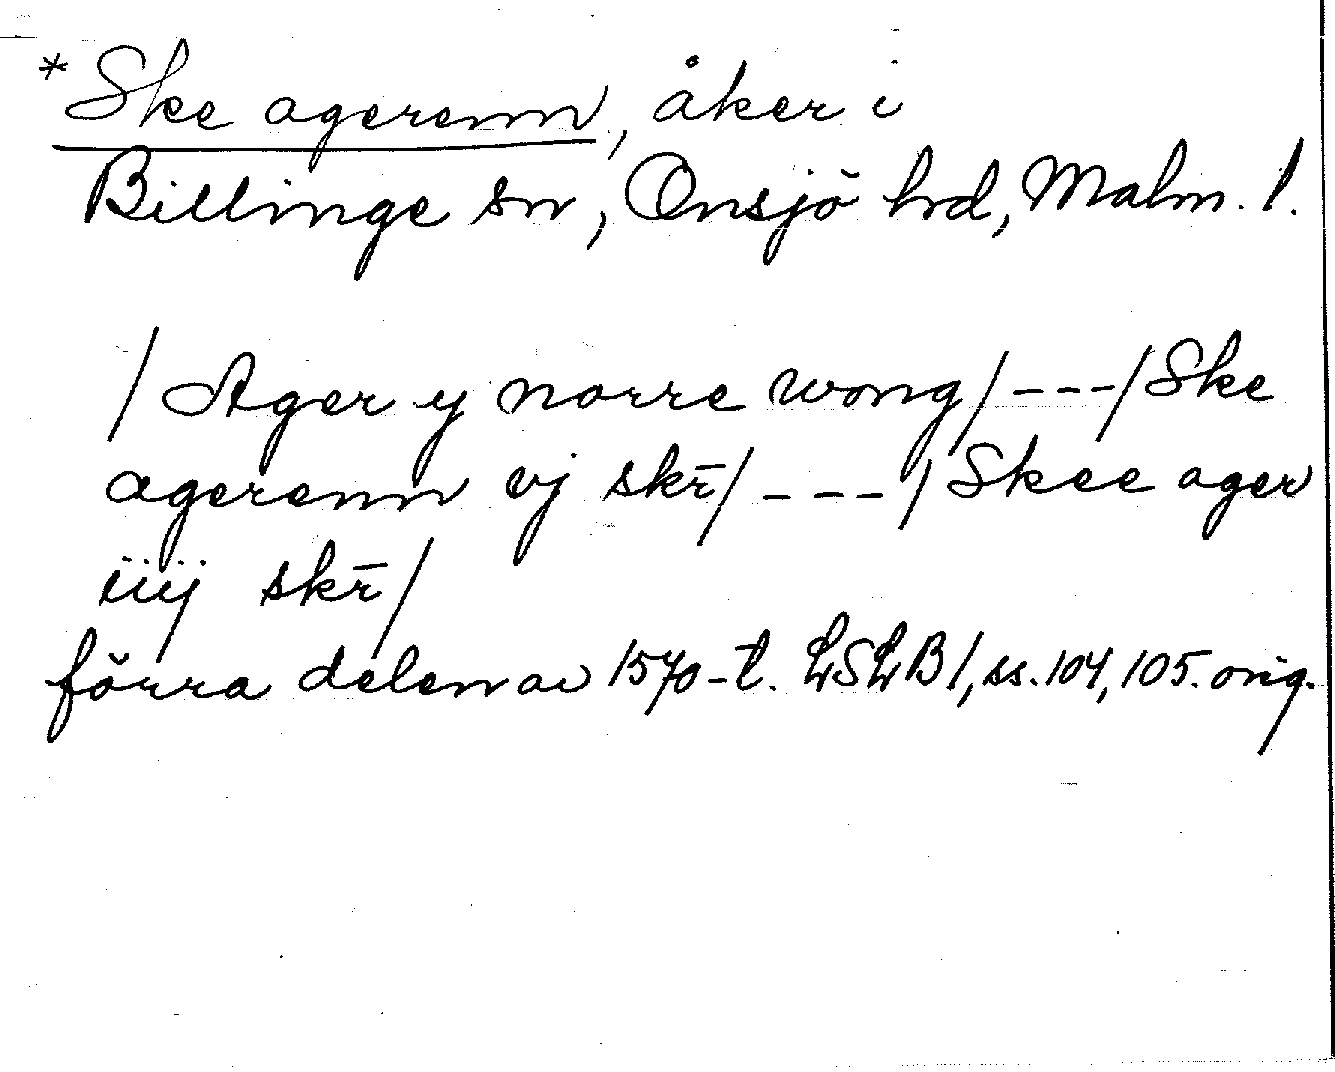 *Ske agerenn, åker i
Billinge sn, Onsjö hrd, Malm. l.
/Ager y norre wong/---/Ske
agerenn vj skr̄/---/Skee ager
iiij skr̄/
förra delen av 1570-t. LSLB1, ss. 104, 105. orig.